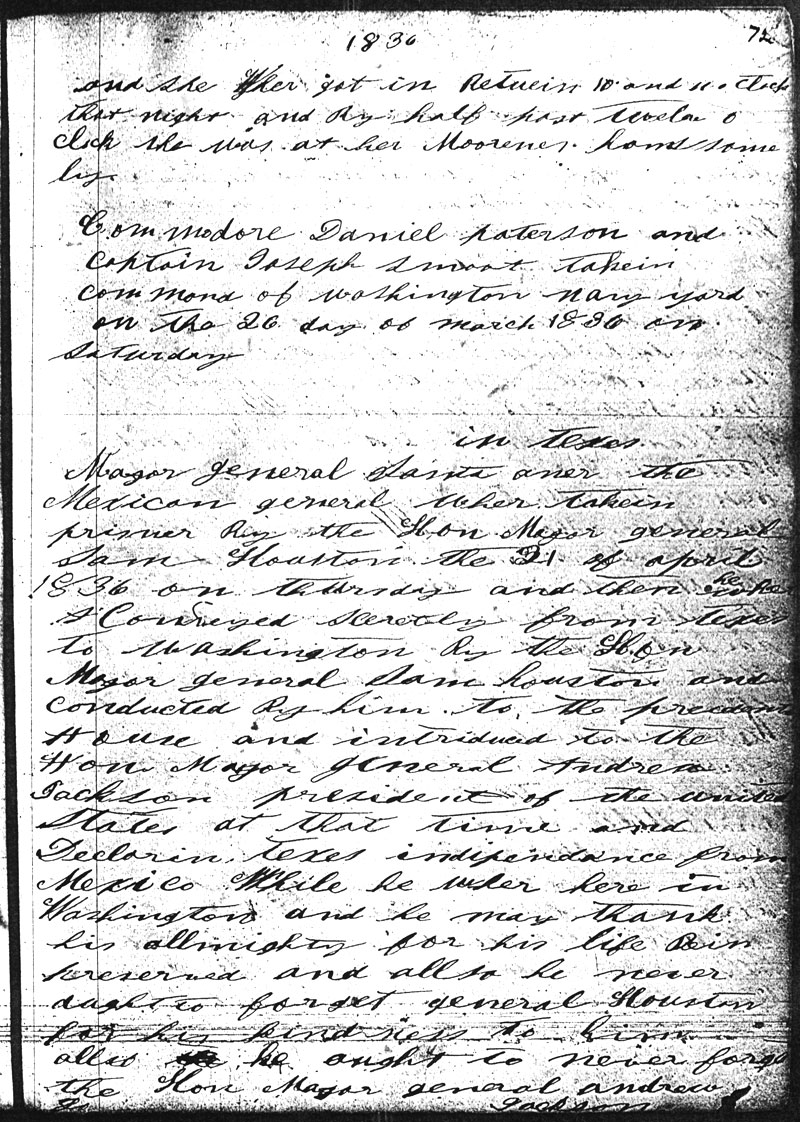 1836
72
and she Wher got in Betwein 10 and 11 o Clock
that night and By half past Twelve o
clock she was at her Moorenes handsome
ly
Commodore Daniel paterson and
Captain Joseph Smoot takein
command of washington navy yard
on the 26 day of march 1836 on
Saturday
in texes
Major general Santa aner the
Mexican general wher takein
prisner By the Hon Major general
Sam Houston the 21 of april
1836 on thursday and then he
Conveyed secretly from texes
to Washington By the Hon
Major general Sam houston and
Conducted By him to the
House and introduced to the
Hon Major general Andrew
Jackson president of the united
States at that time and
Declarin texes indipendance from
Mexico While he wher here in
Washington and he may thank
his allmighty for his life Bein
preserved and allso he never
aught to forget general Houston
for his kindness to him
allso he ought to never forget
the Hon Major general andrew
Jackson